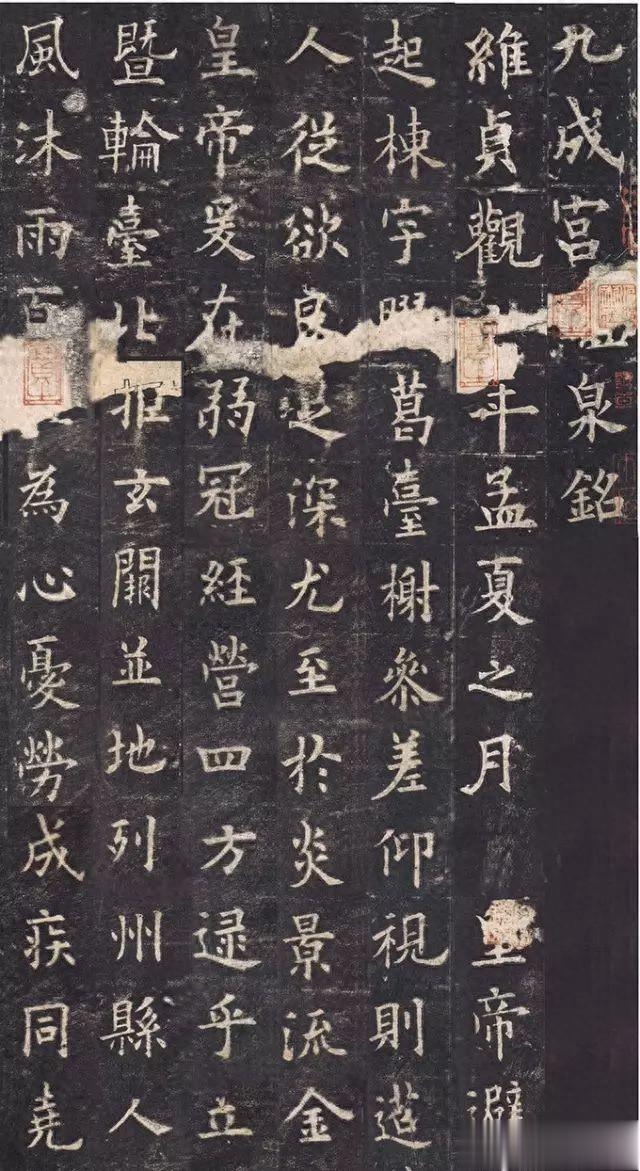 九成宮泉銘
維貞觀年孟夏之月皇帝避
起棟宇暍臺榭參差仰視則迢
人從欲良足深尤至於炎景流金
皇帝爰在弱冠經營四方逯乎立
暨輪臺北拒玄闕並地列州縣人
風沐雨百為心憂勞成疾同堯